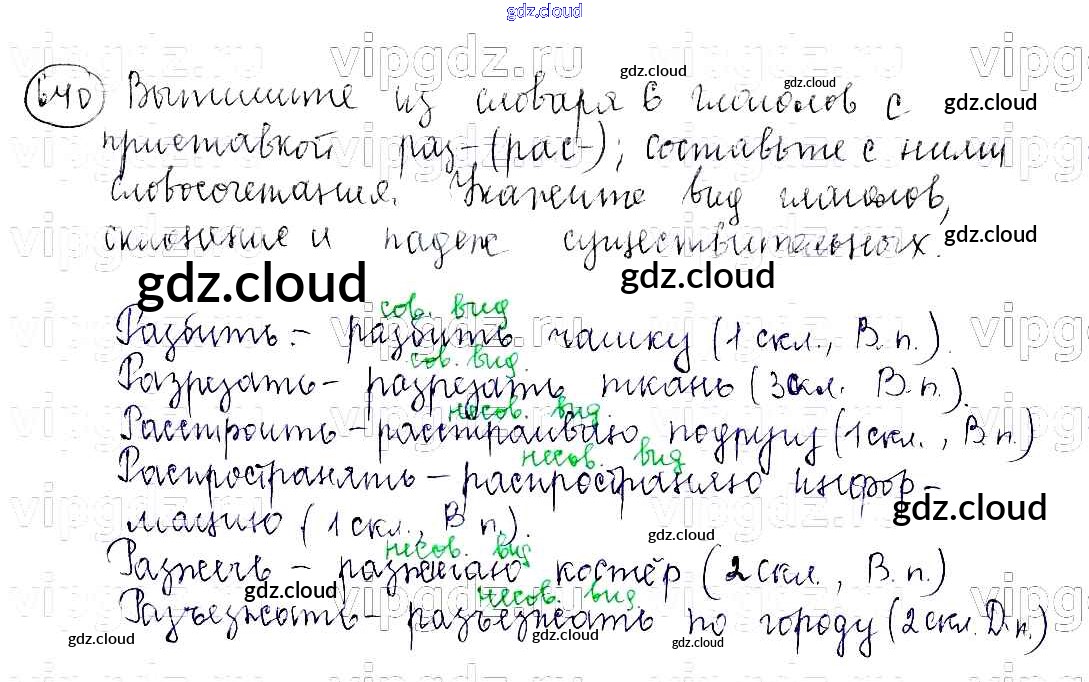 gdz.cloud
640 Выпишите из словаря 6 глаголов с
приставкой раз-(рас-); составьте с ними
словосочетания. Укажите вид глаголов,
склонение и падеж существительных.
gdz.cloud
gdz.cloud
gdz.cloud
gdz.cloud
gdz.cloud
gdz.cloud
сов. вид
Разбить. - разбить чашку (1 скл., В.п.).
сов. вид.
Разрезать - разрезать ткань (3 скл. В.п.).
несов. вид
Расстроить - расстраиваю подругу (1 скл., В.п.)
несов. вид
Распространять - распространяю инфор-
мацию (1 скл., В п.).
gdz.cloud
gdz.cloud
несов. вид
Разжечь - разжигаю костёр (2 скл., В.п.)
gdz.cloud
несов. вид.
Разъезжать - разъезжать по городу (2 скл. Д.п.)
gdz.cloud
gdz.cloud
gdz.cloud
vipgdz.ru